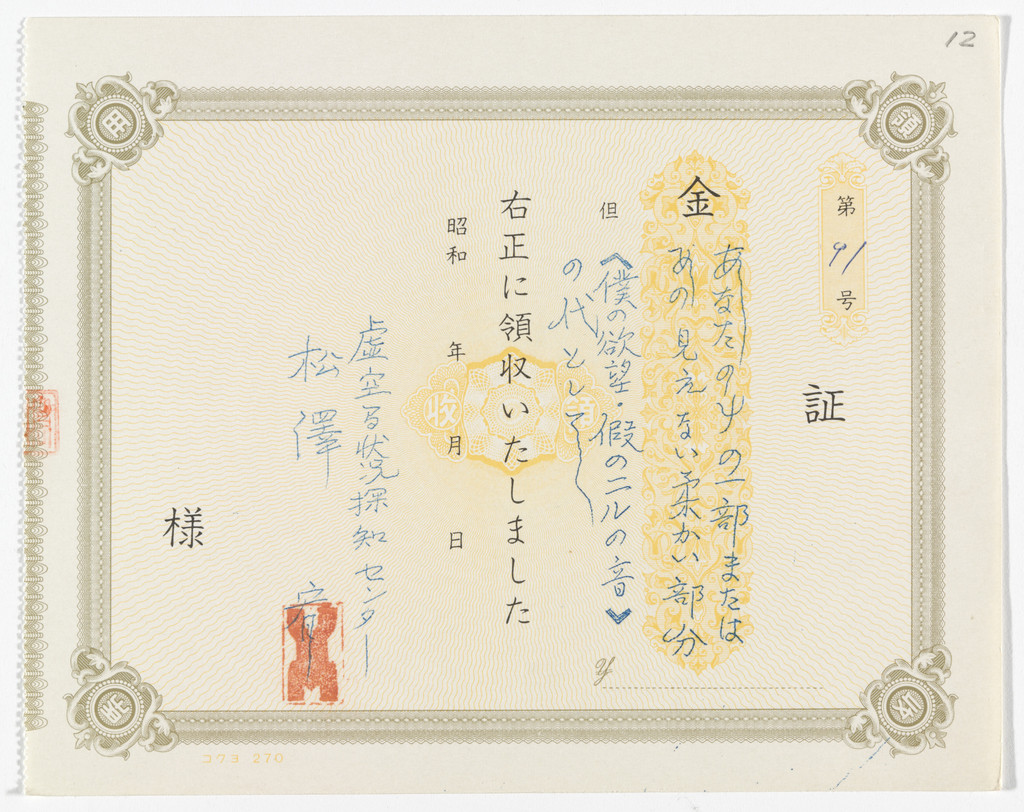 12
第91号
証
金 あなたのγの一部または
あの見えない柔かい部分
但 《僕の欲望・假のニルの音》
の代として
右正に領収いたしました
昭和 年 月 日
虚空間状況探知センター
松澤 宥
様
領 収
コクヨ 270